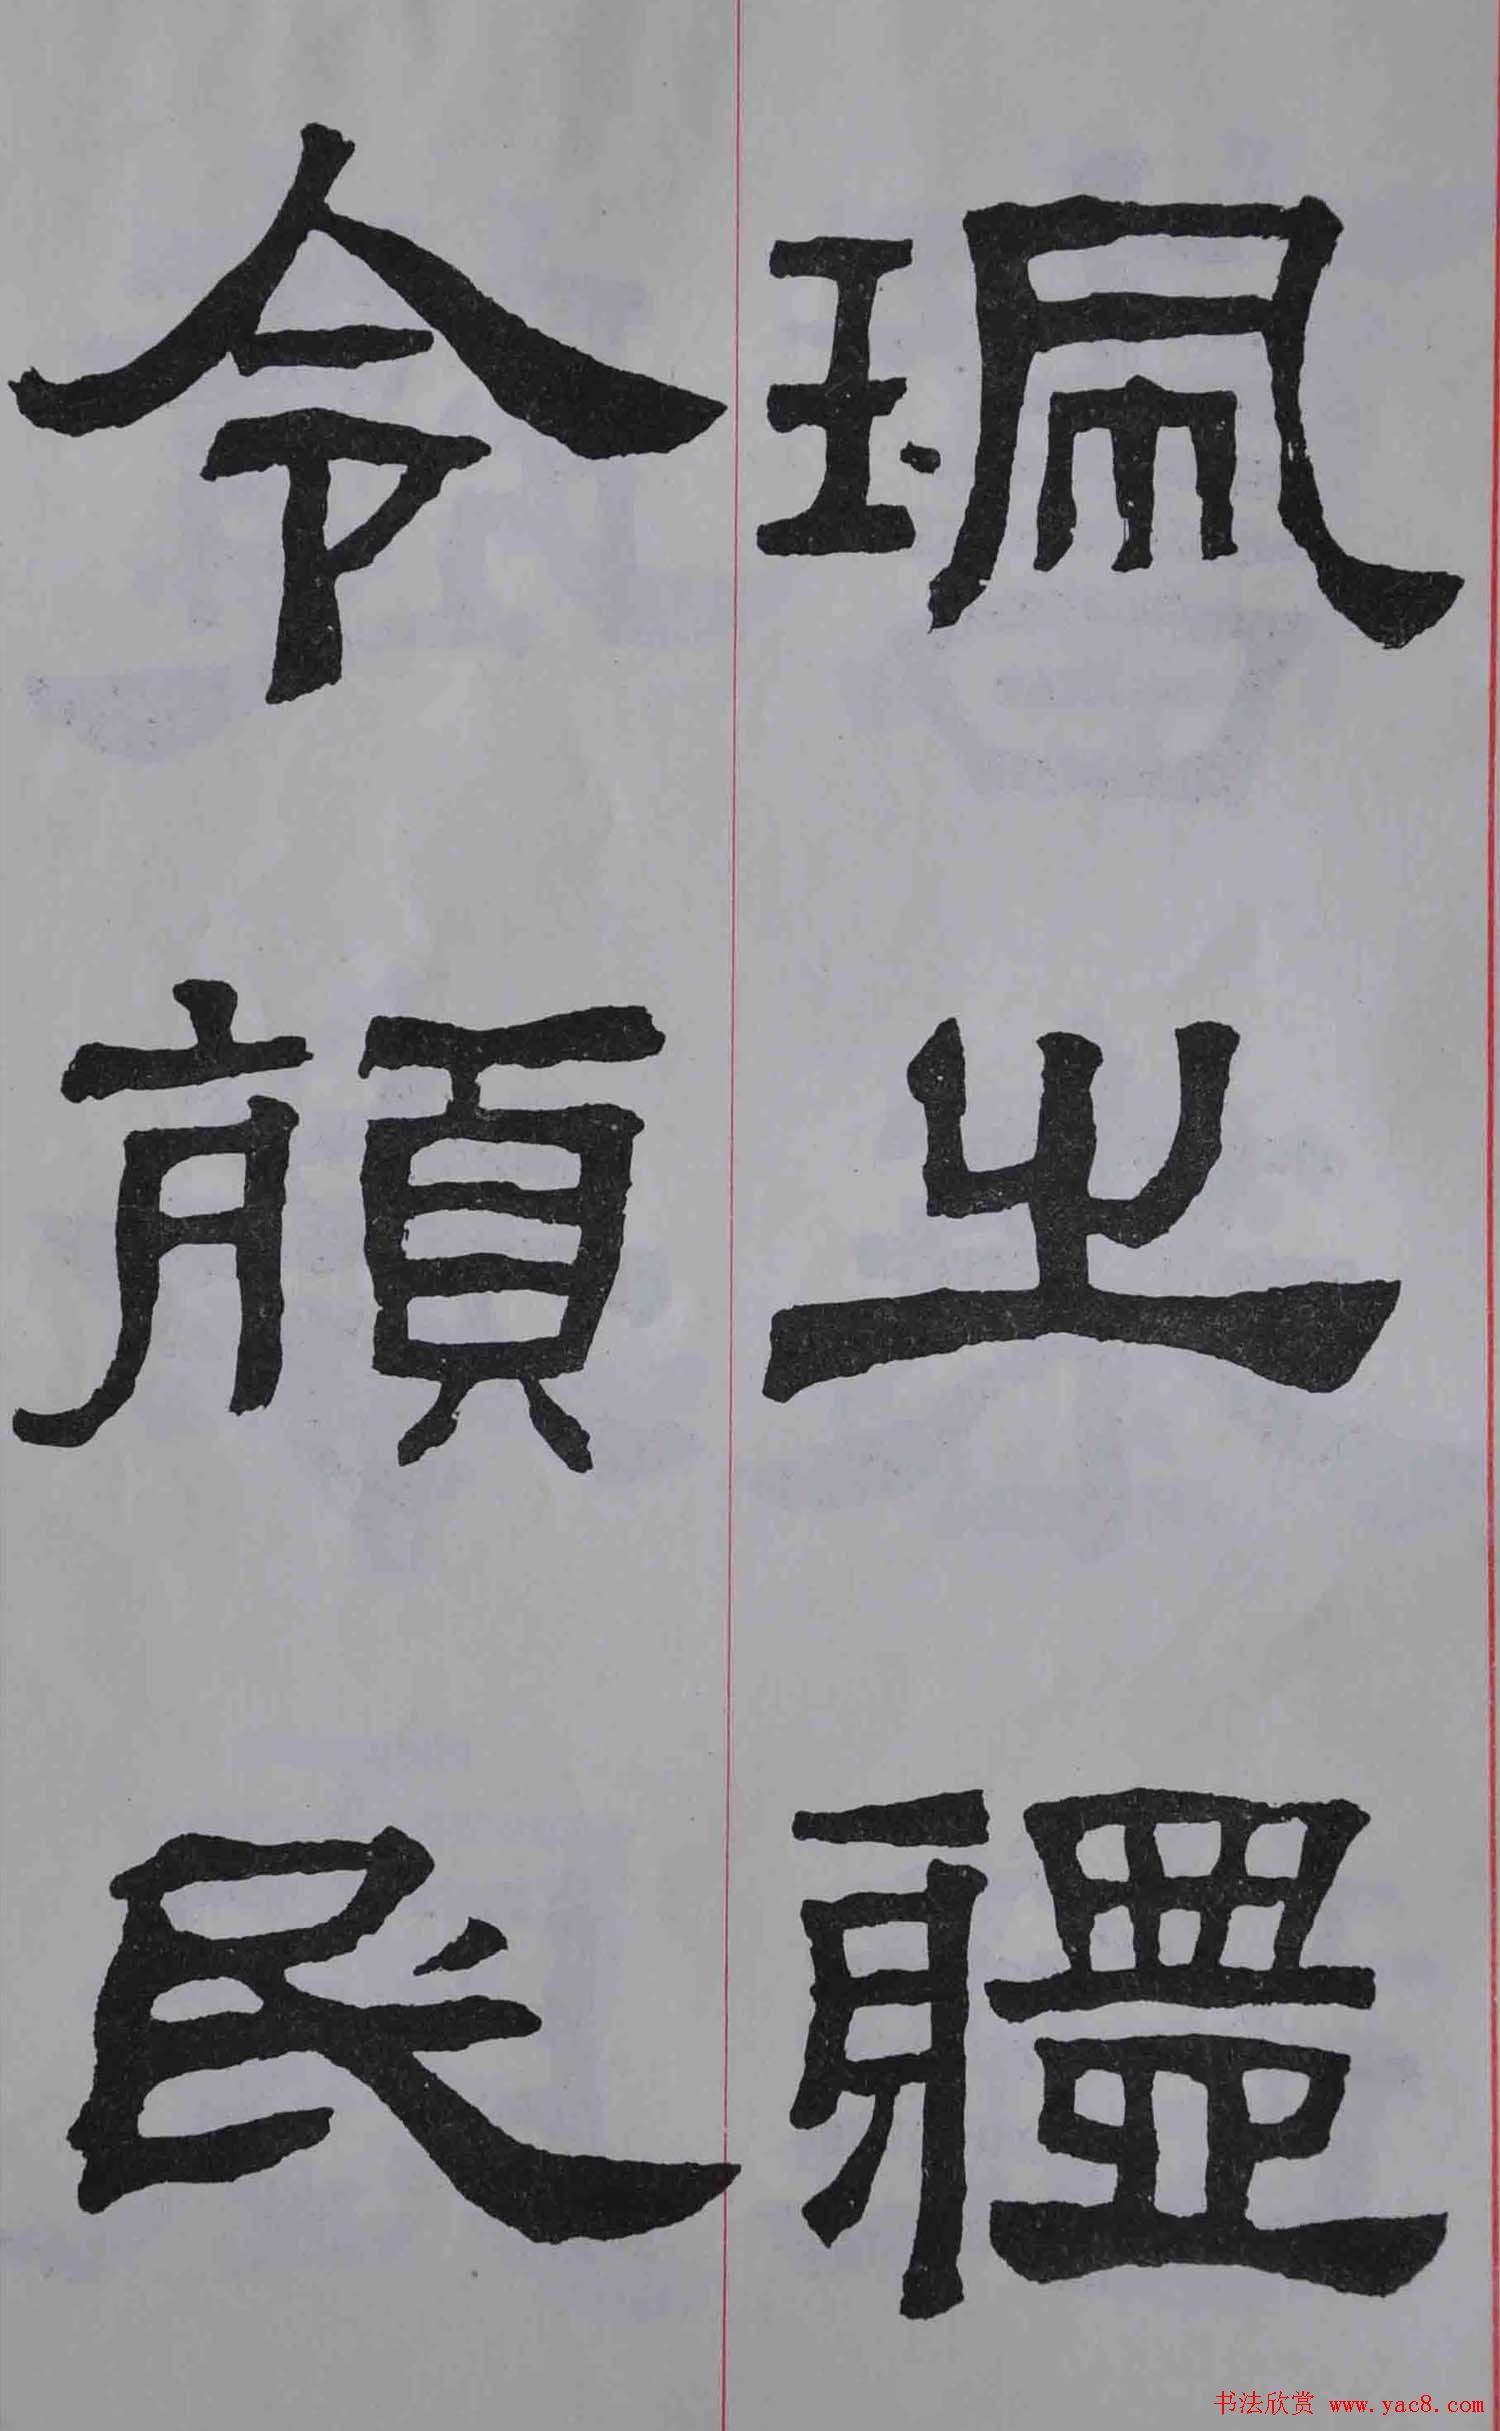 珮之體
令頏民
书法欣赏 www.yac8.com